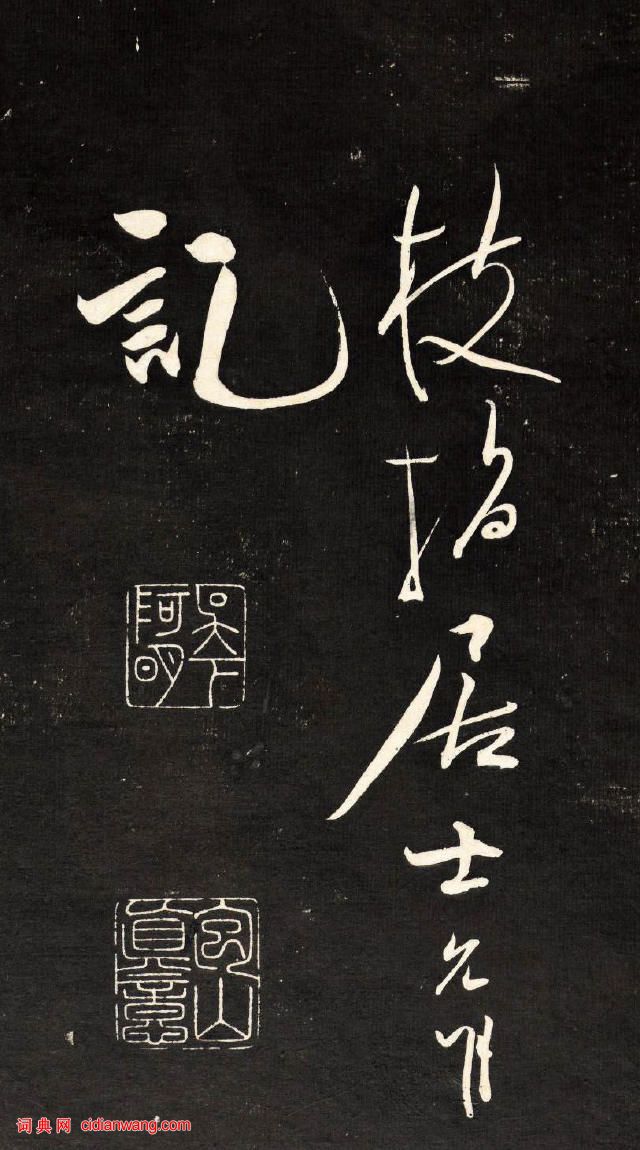 枝指居士允明
記
吳下阿明
词典网 cidianwang.com